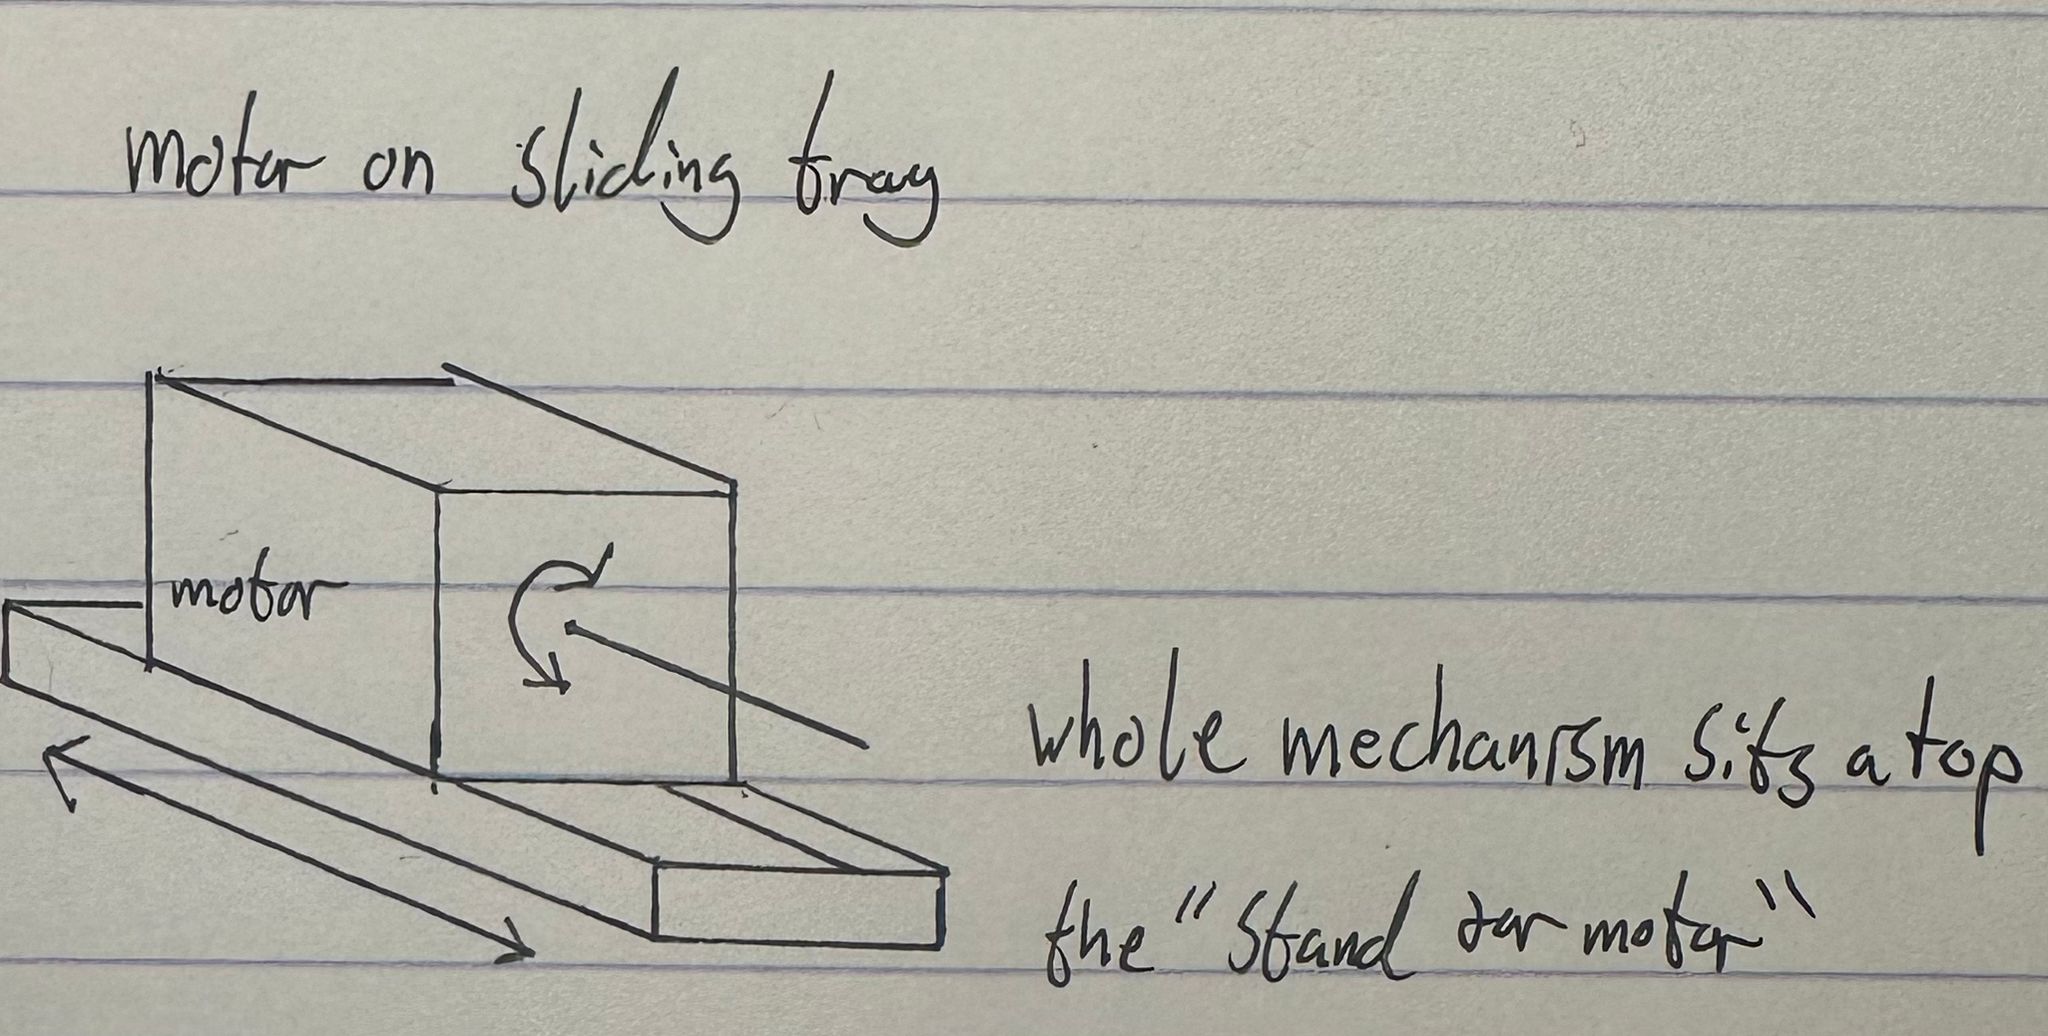 motor on sliding tray
motor
whole mechanism sits a top
the "Stand for motor"